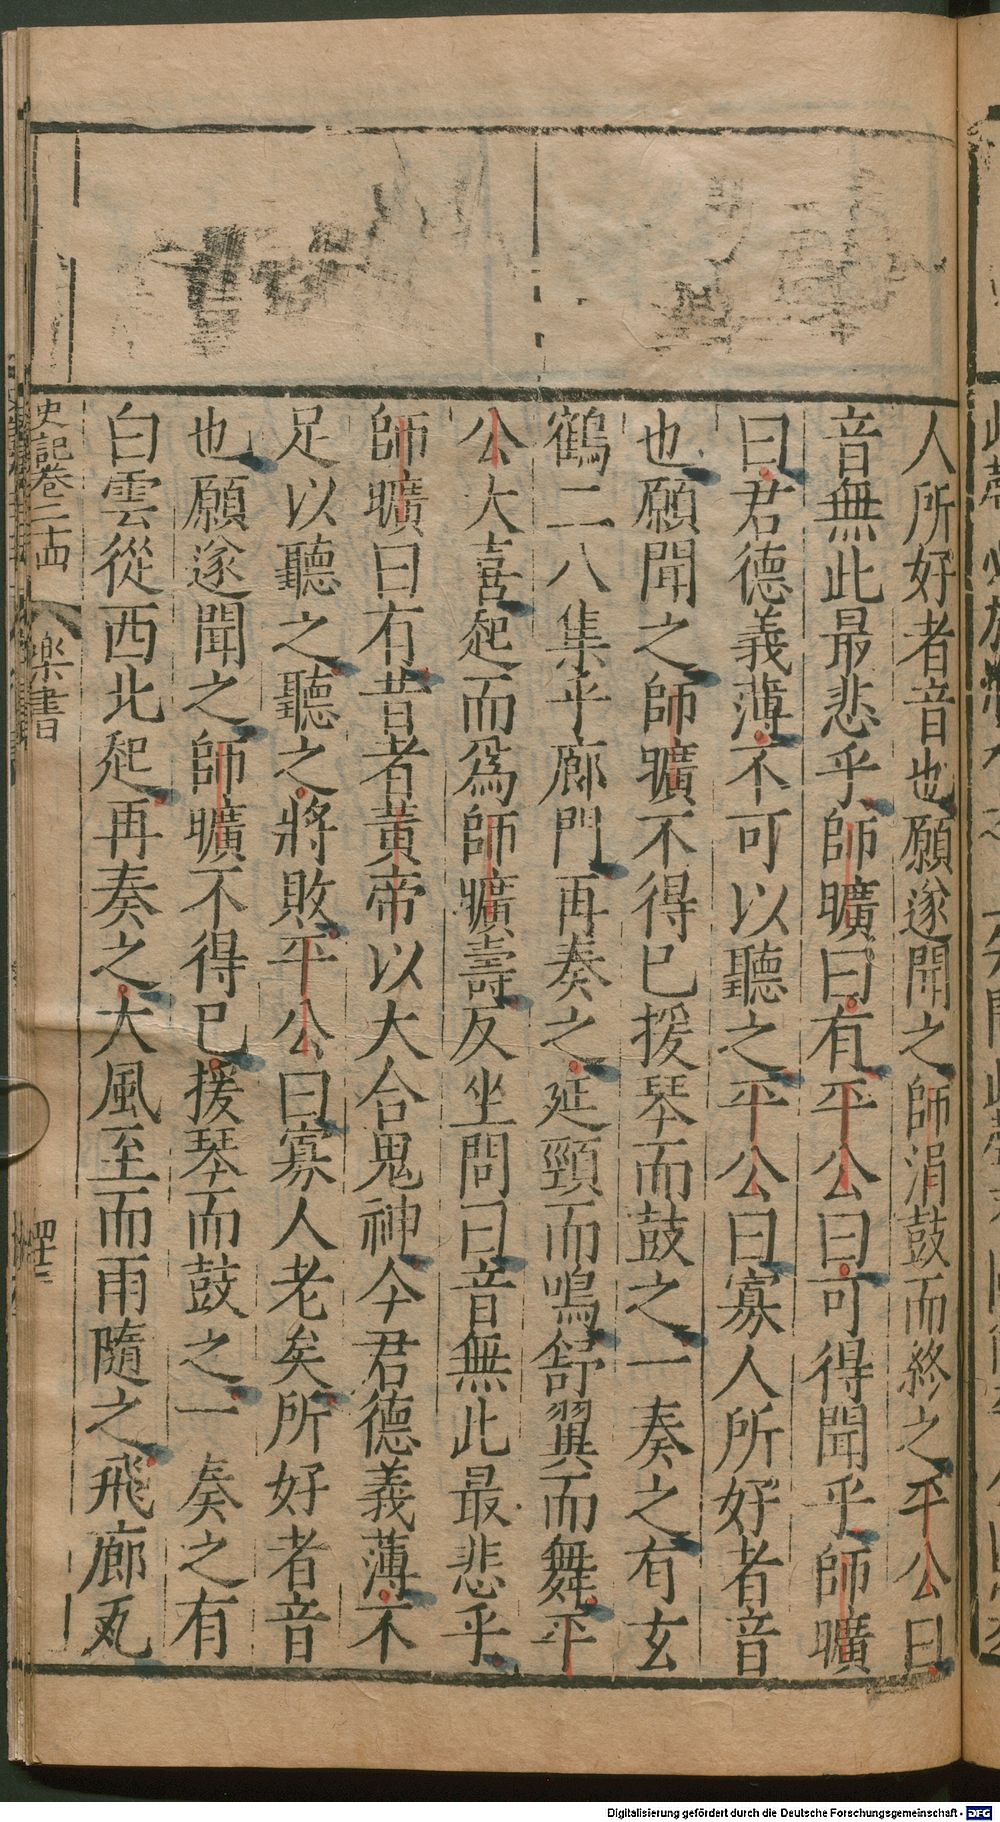 人所好者音也願遂聞之師涓鼓而終之平公曰
音無此最悲乎師曠曰有平公曰可得聞乎師曠
曰君德義薄不可以聽之平公曰寡人所好者音
也願聞之師曠不得已援琴而鼓之一奏之有玄
鶴二八集乎廊門再奏之延頸而鳴舒翼而舞平
公大喜起而爲師曠壽反坐問曰音無此最悲乎
師曠曰有昔者黃帝以大合鬼神今君德義薄不
足以聽之聽之將敗平公曰寡人老矣所好者音
也願遂聞之師曠不得已援琴而鼓之一奏之有
白雲從西北起再奏之大風至而雨隨之飛廊瓦
史記卷二十四 樂書
Digitalisierung gefördert durch die Deutsche Forschungsgemeinschaft - DFG